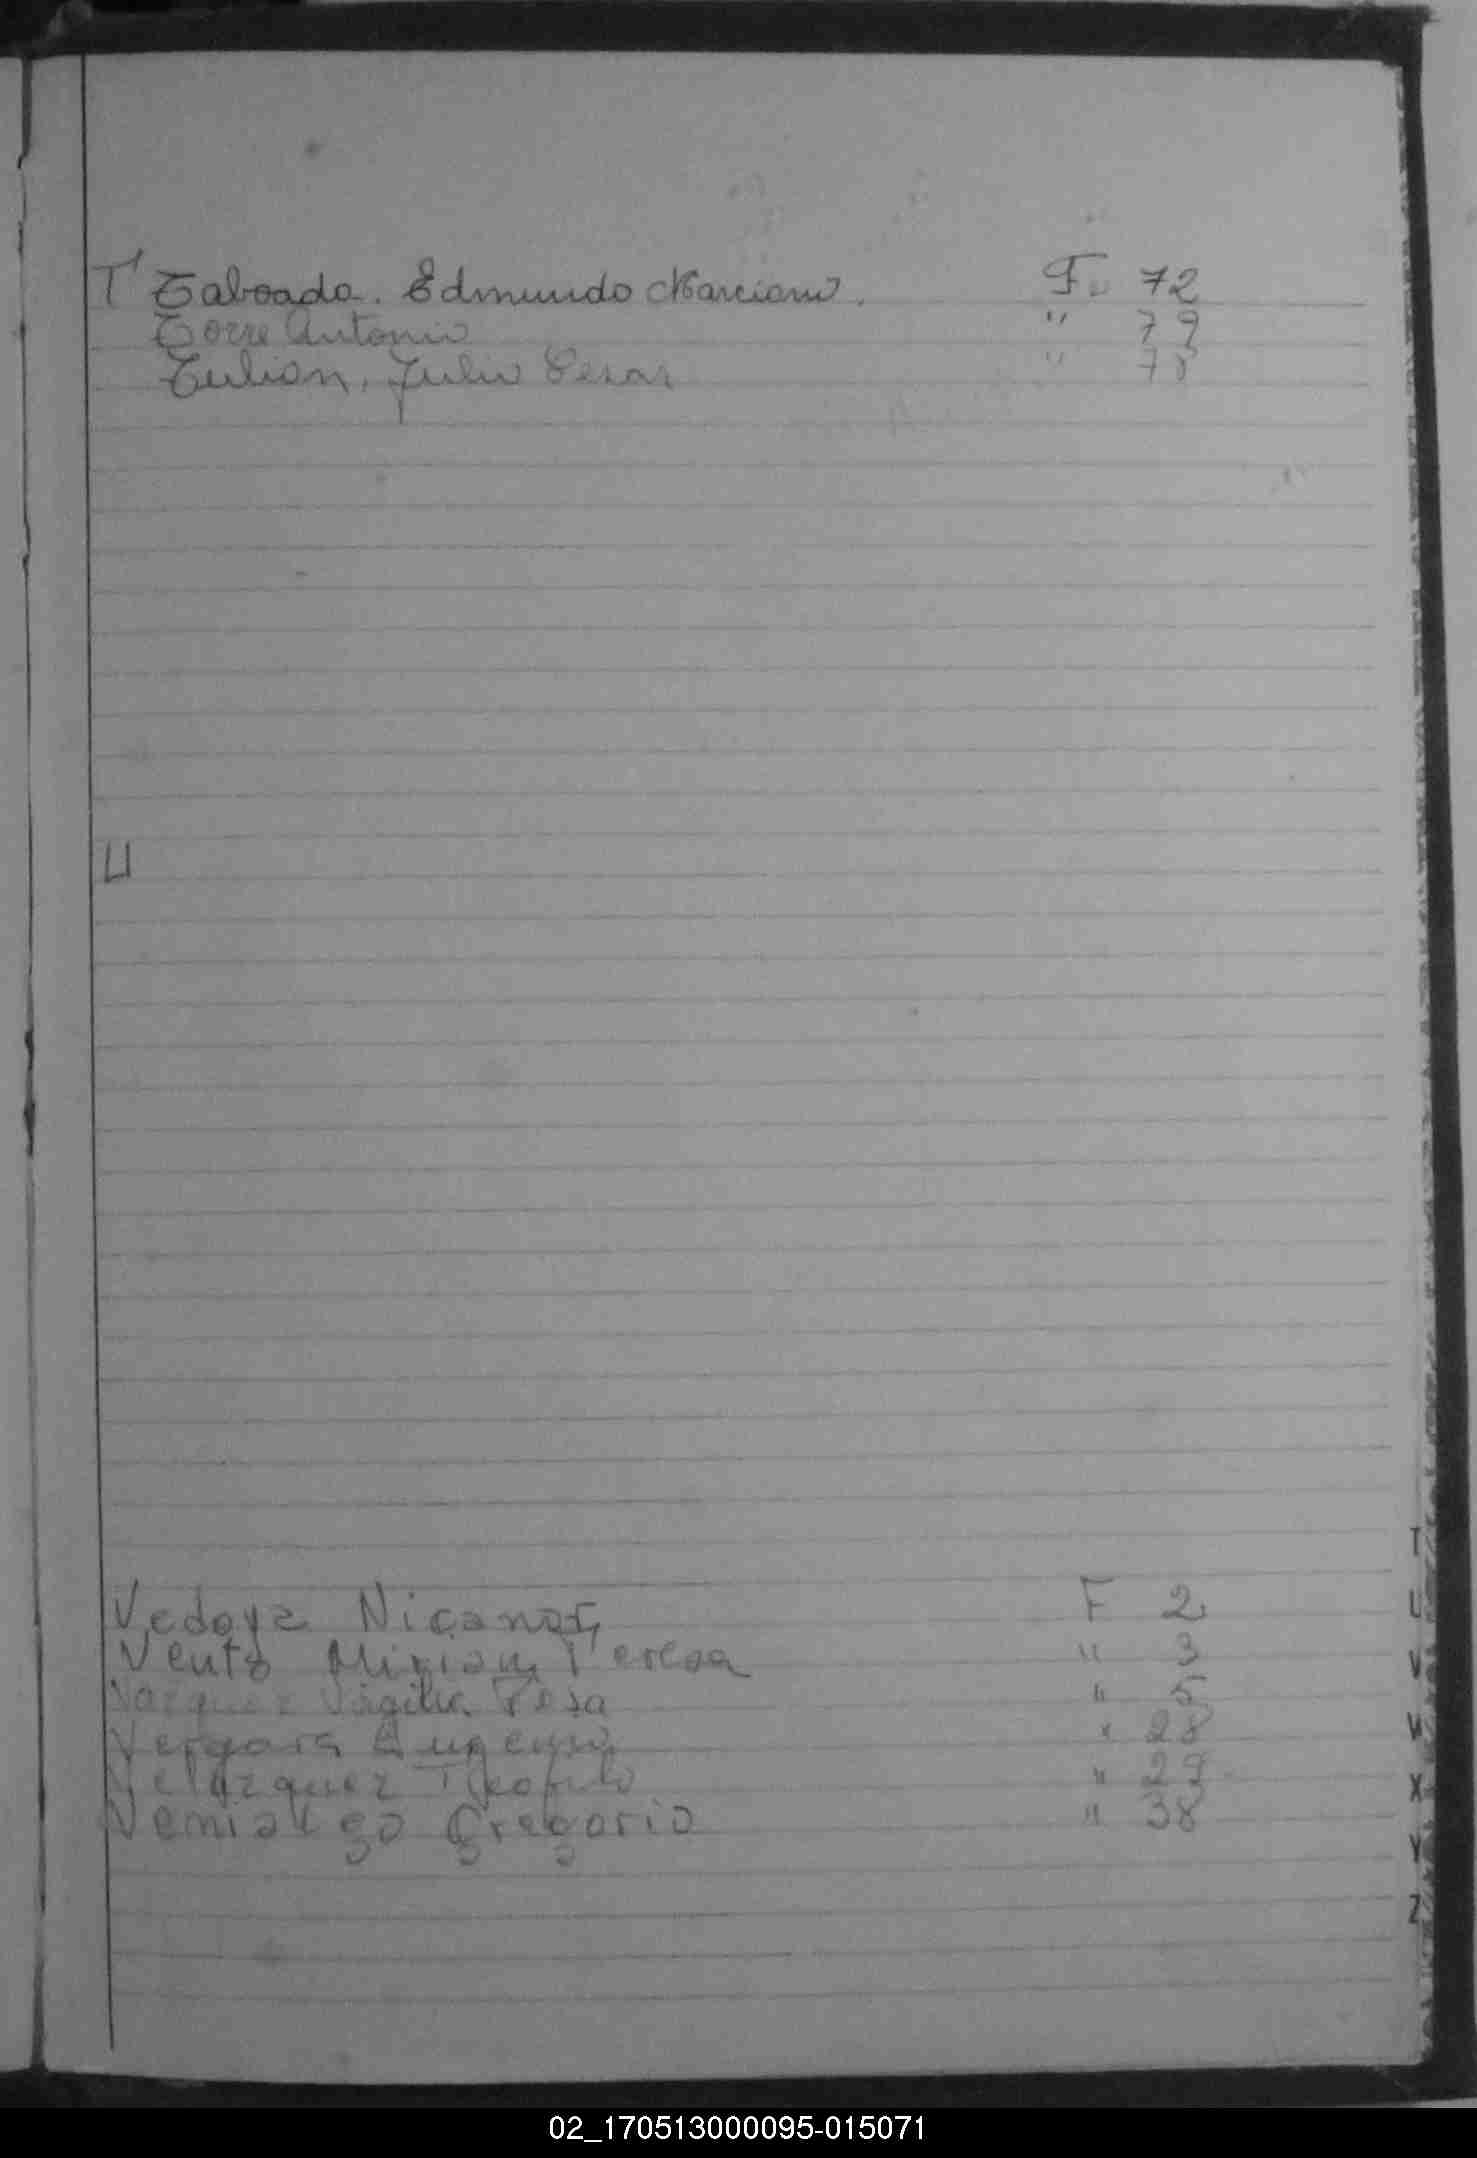 T Taboada. Edmundo Marciano. Fo 72
Torre Antonio " 79
Tulian, Julio Cesar " 78
U
Vedoya Nicanor F 2
Vento Mirian Teresa " 3
Vazquez Virgilia Rosa " 5
Vergara Eugenio " 28
Velazquez Teofilo " 29
Gregorio " 38
T
U
V
W
X
Y
Z
02_170513000095-015071